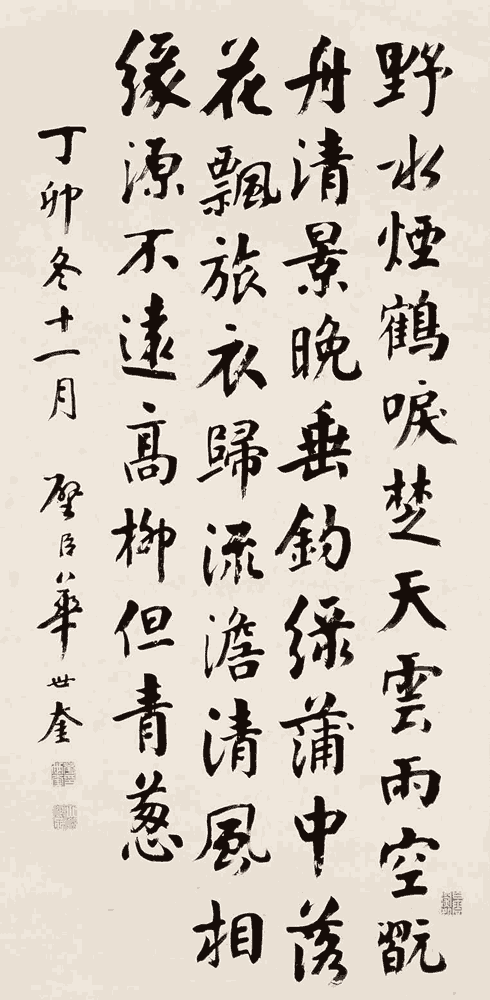 野水煙鶴唳楚天雲雨空翫
舟清景晚垂釣綠蒲中落
花飄旅衣歸流澹清風相
緣源不遠高柳但青蔥
丁卯冬十一月 壁臣華世奎